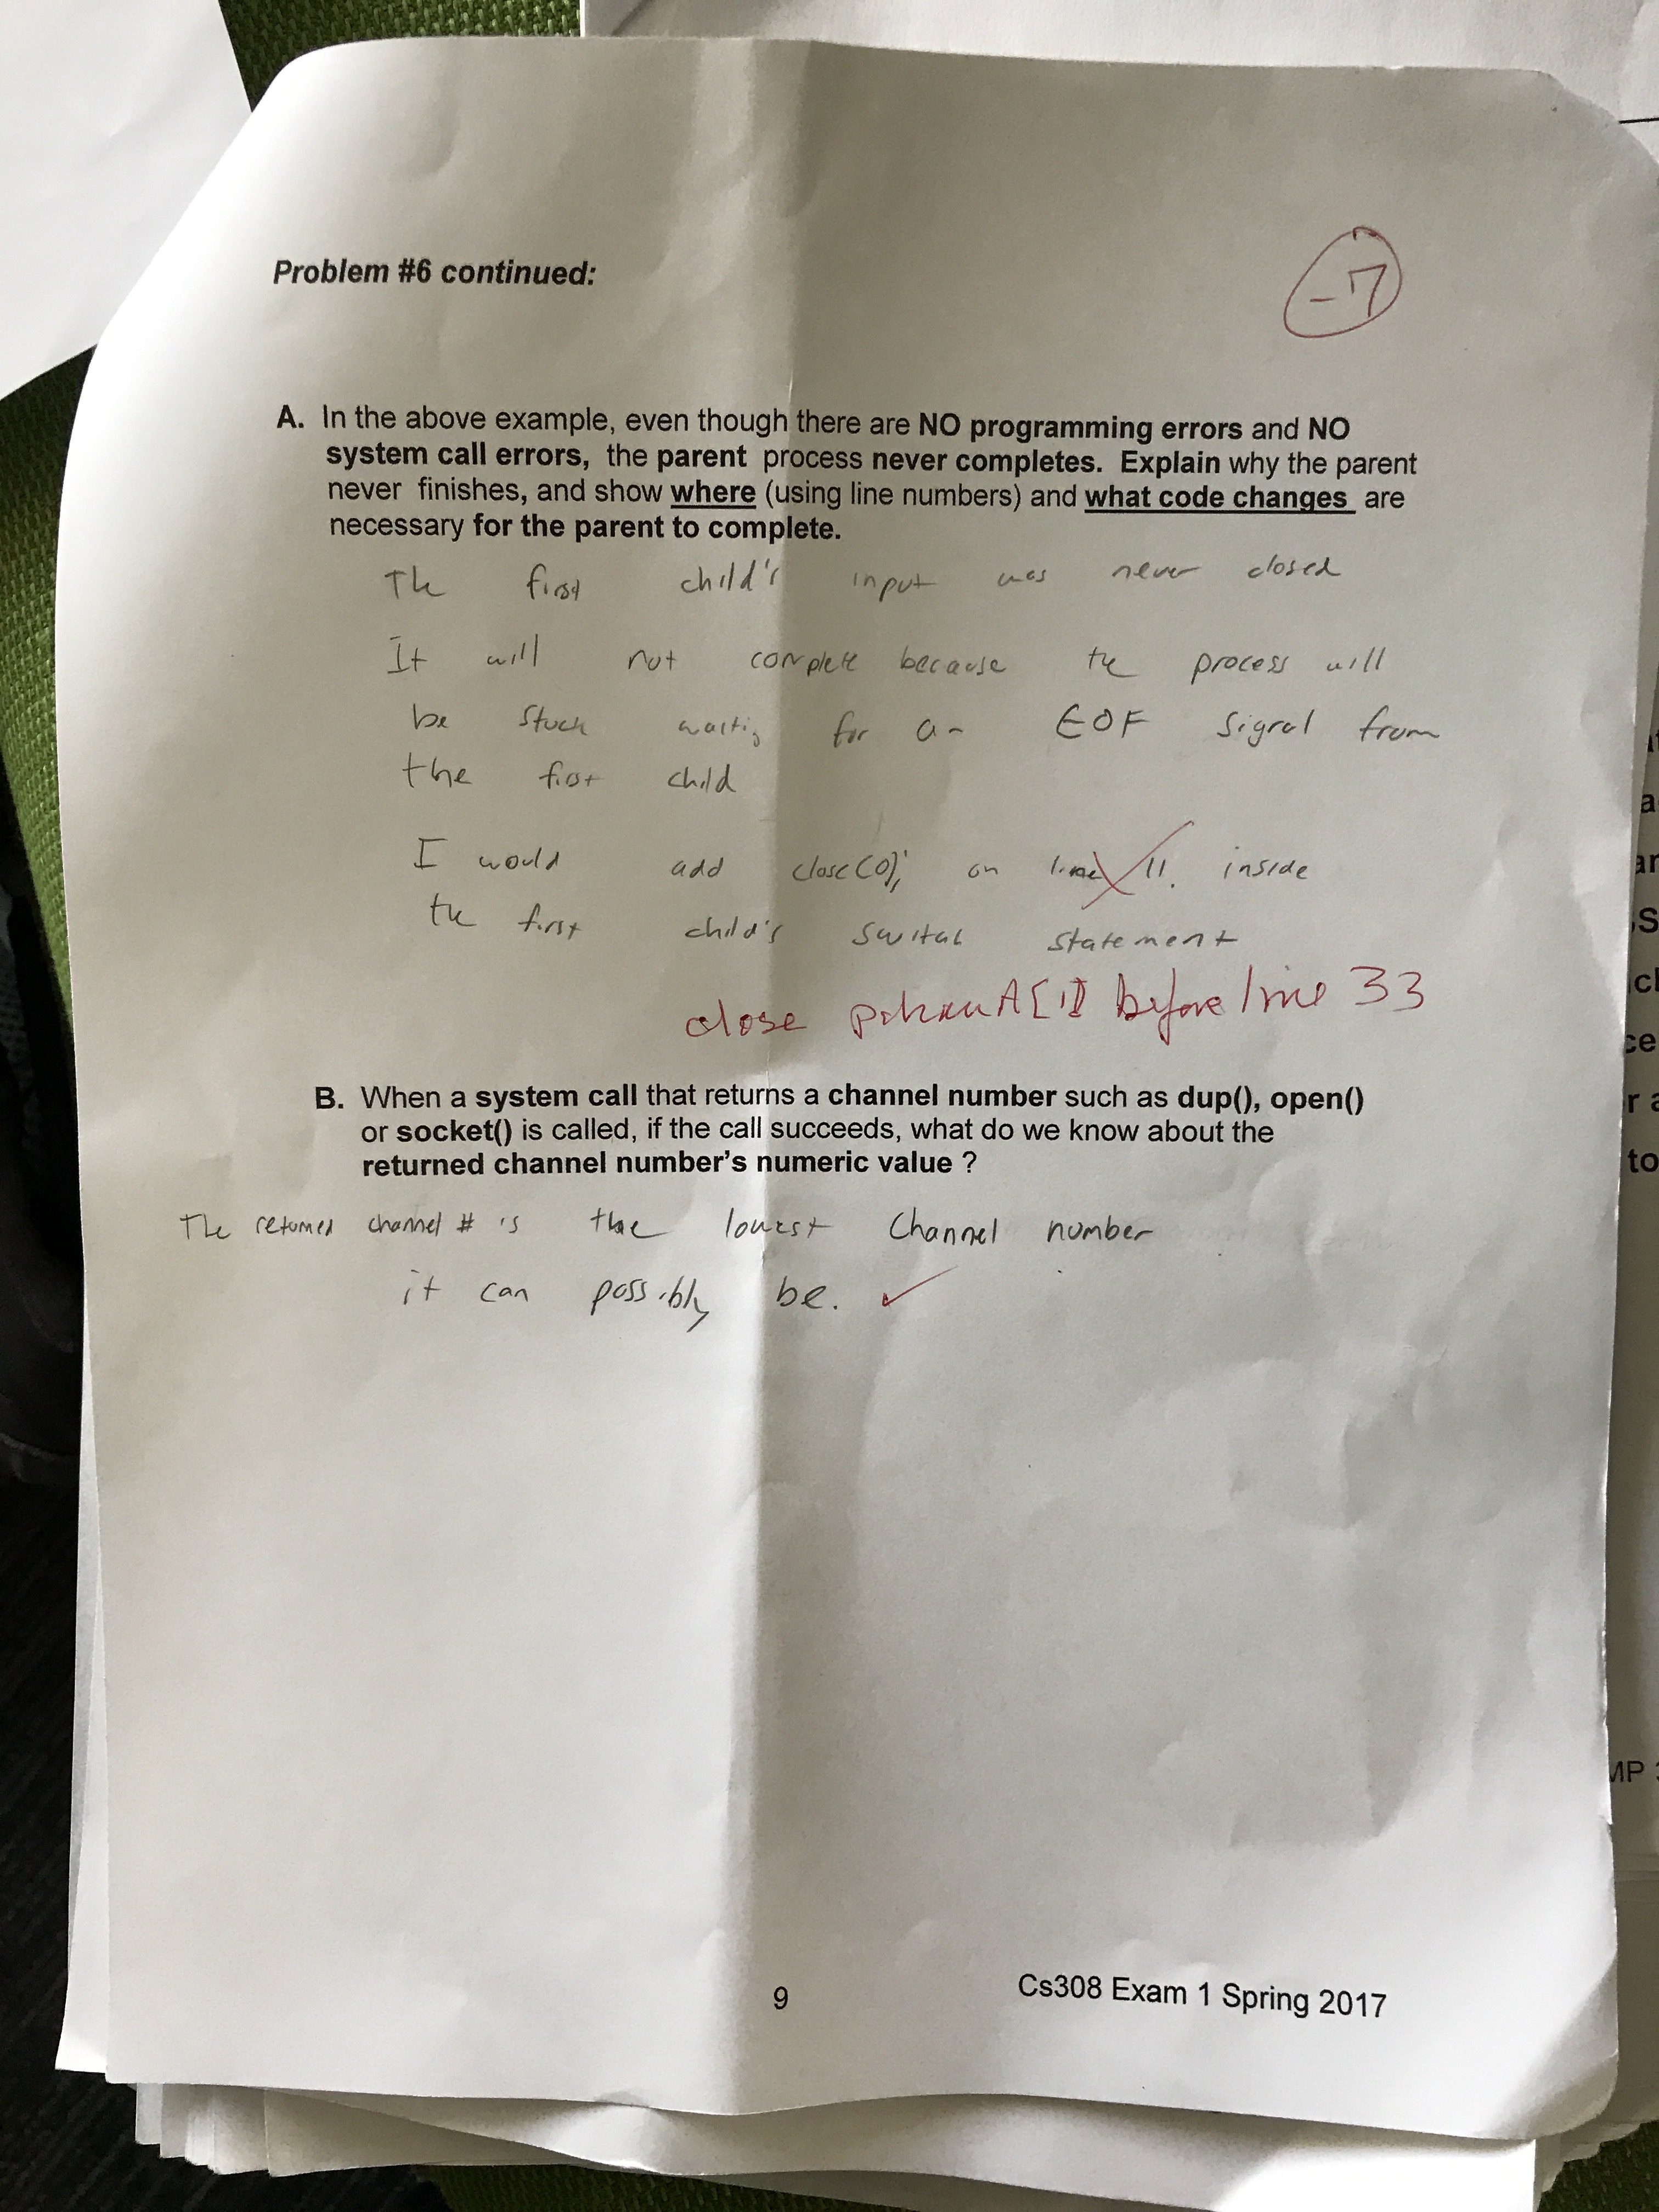 Problem #6 continued:
-7
A. In the above example, even though there are NO programming errors and NO
system call errors, the parent process never completes. Explain why the parent
never finishes, and show where (using line numbers) and what code changes are
necessary for the parent to complete.
The first child's input was never closed
It will not complete because the process will
be stuck waiting for an EOF signal from
the first child
I would add close(0); on line 11. inside
the first child's switch statement
close before line 33
B. When a system call that returns a channel number such as dup(), open()
or socket() is called, if the call succeeds, what do we know about the
returned channel number's numeric value ?
The returned channel # is the lowest channel number
it can possibly be. ✓
9
Cs308 Exam 1 Spring 2017